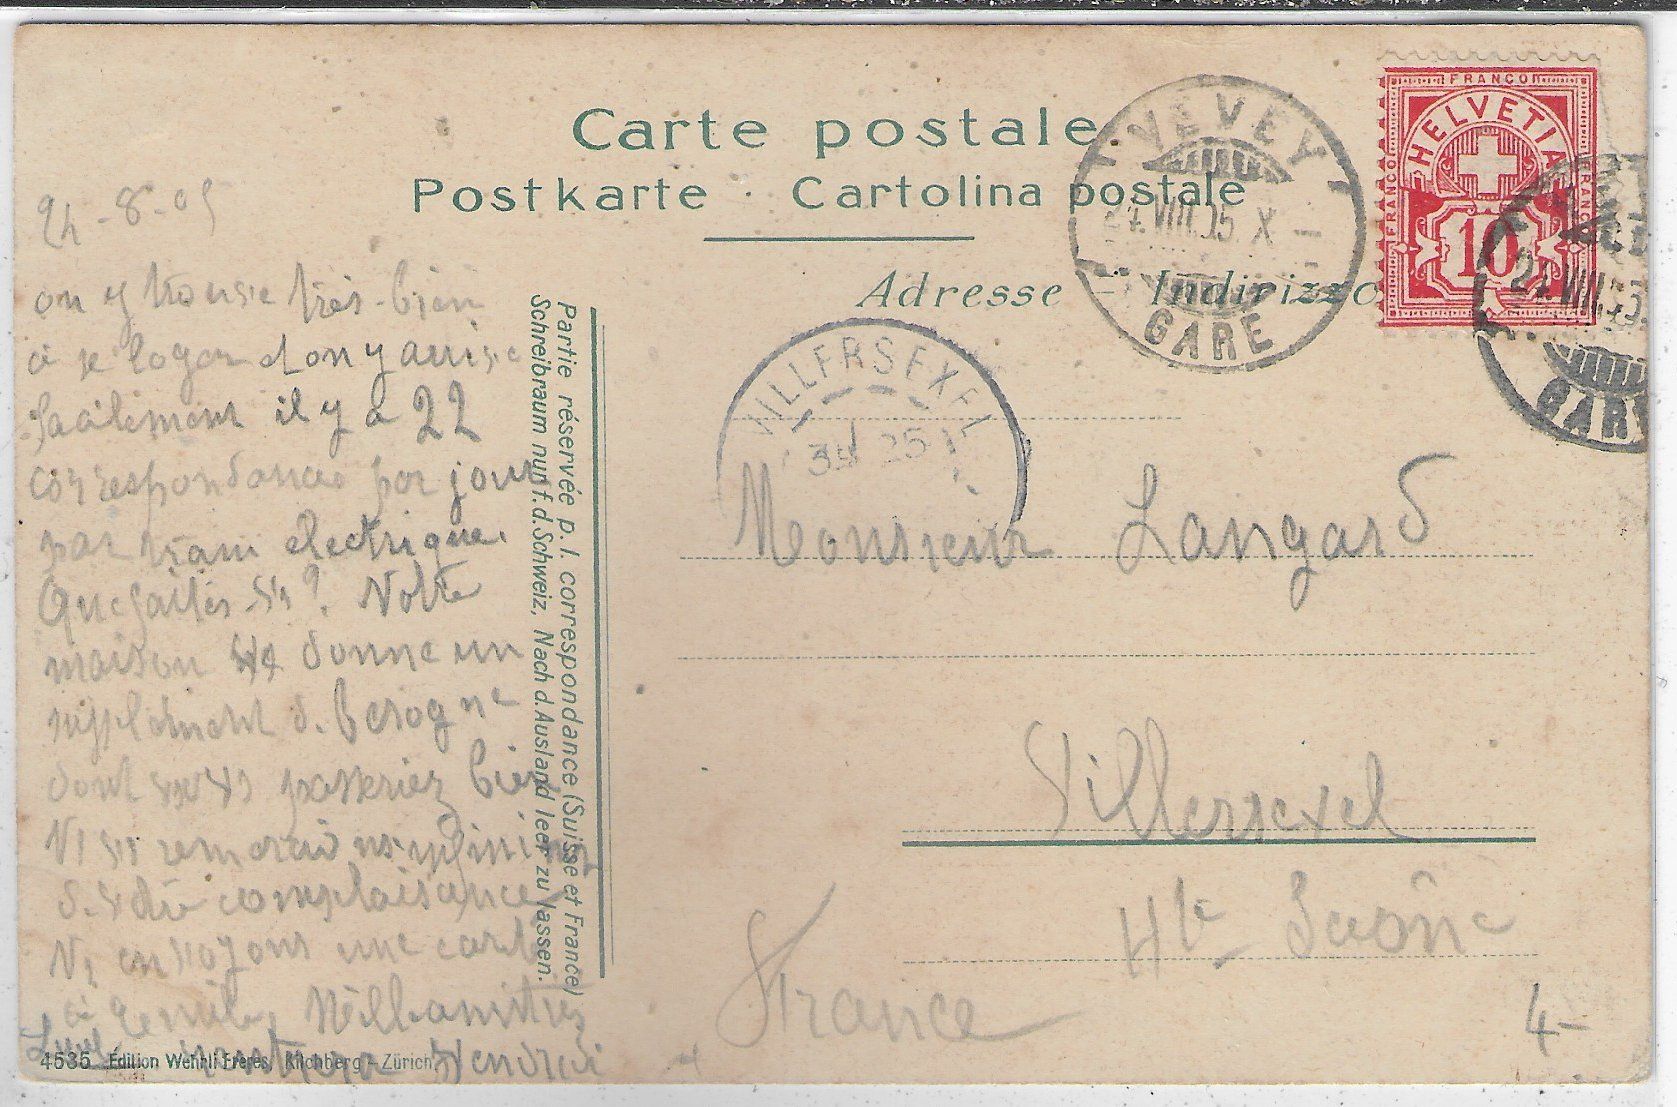 Carte postale
Postkarte · Cartolina postale
Adresse - Indirizzo
FRANCO
HELVETIA
FRANCO
FRANCO
10
VEVEY
24.VIII.05.X
GARE
24.VIII.05
GARE
VILLERSEXEL
24-8-05
on y trouve très-bien
à se loger et on y arrive
facilement il y a 22
correspondances par jour
par tram électrique.
Que faites-vs? Notre
maison vs donne un
supplément d. besogne
dont vous vs passeriez bien
Ns vs remercions infiniment
d. votre complaisance
Ns envoyons une carte
à
Partie réservée p. l. correspondance (Suisse et France)
Schreibraum nur f. d. Schweiz. Nach d. Ausland leer zu lassen.
Monsieur Langard
Villersexel
Hte Saône
France
4-
4535 Edition Wehrli Frères, Kilchberg-Zürich